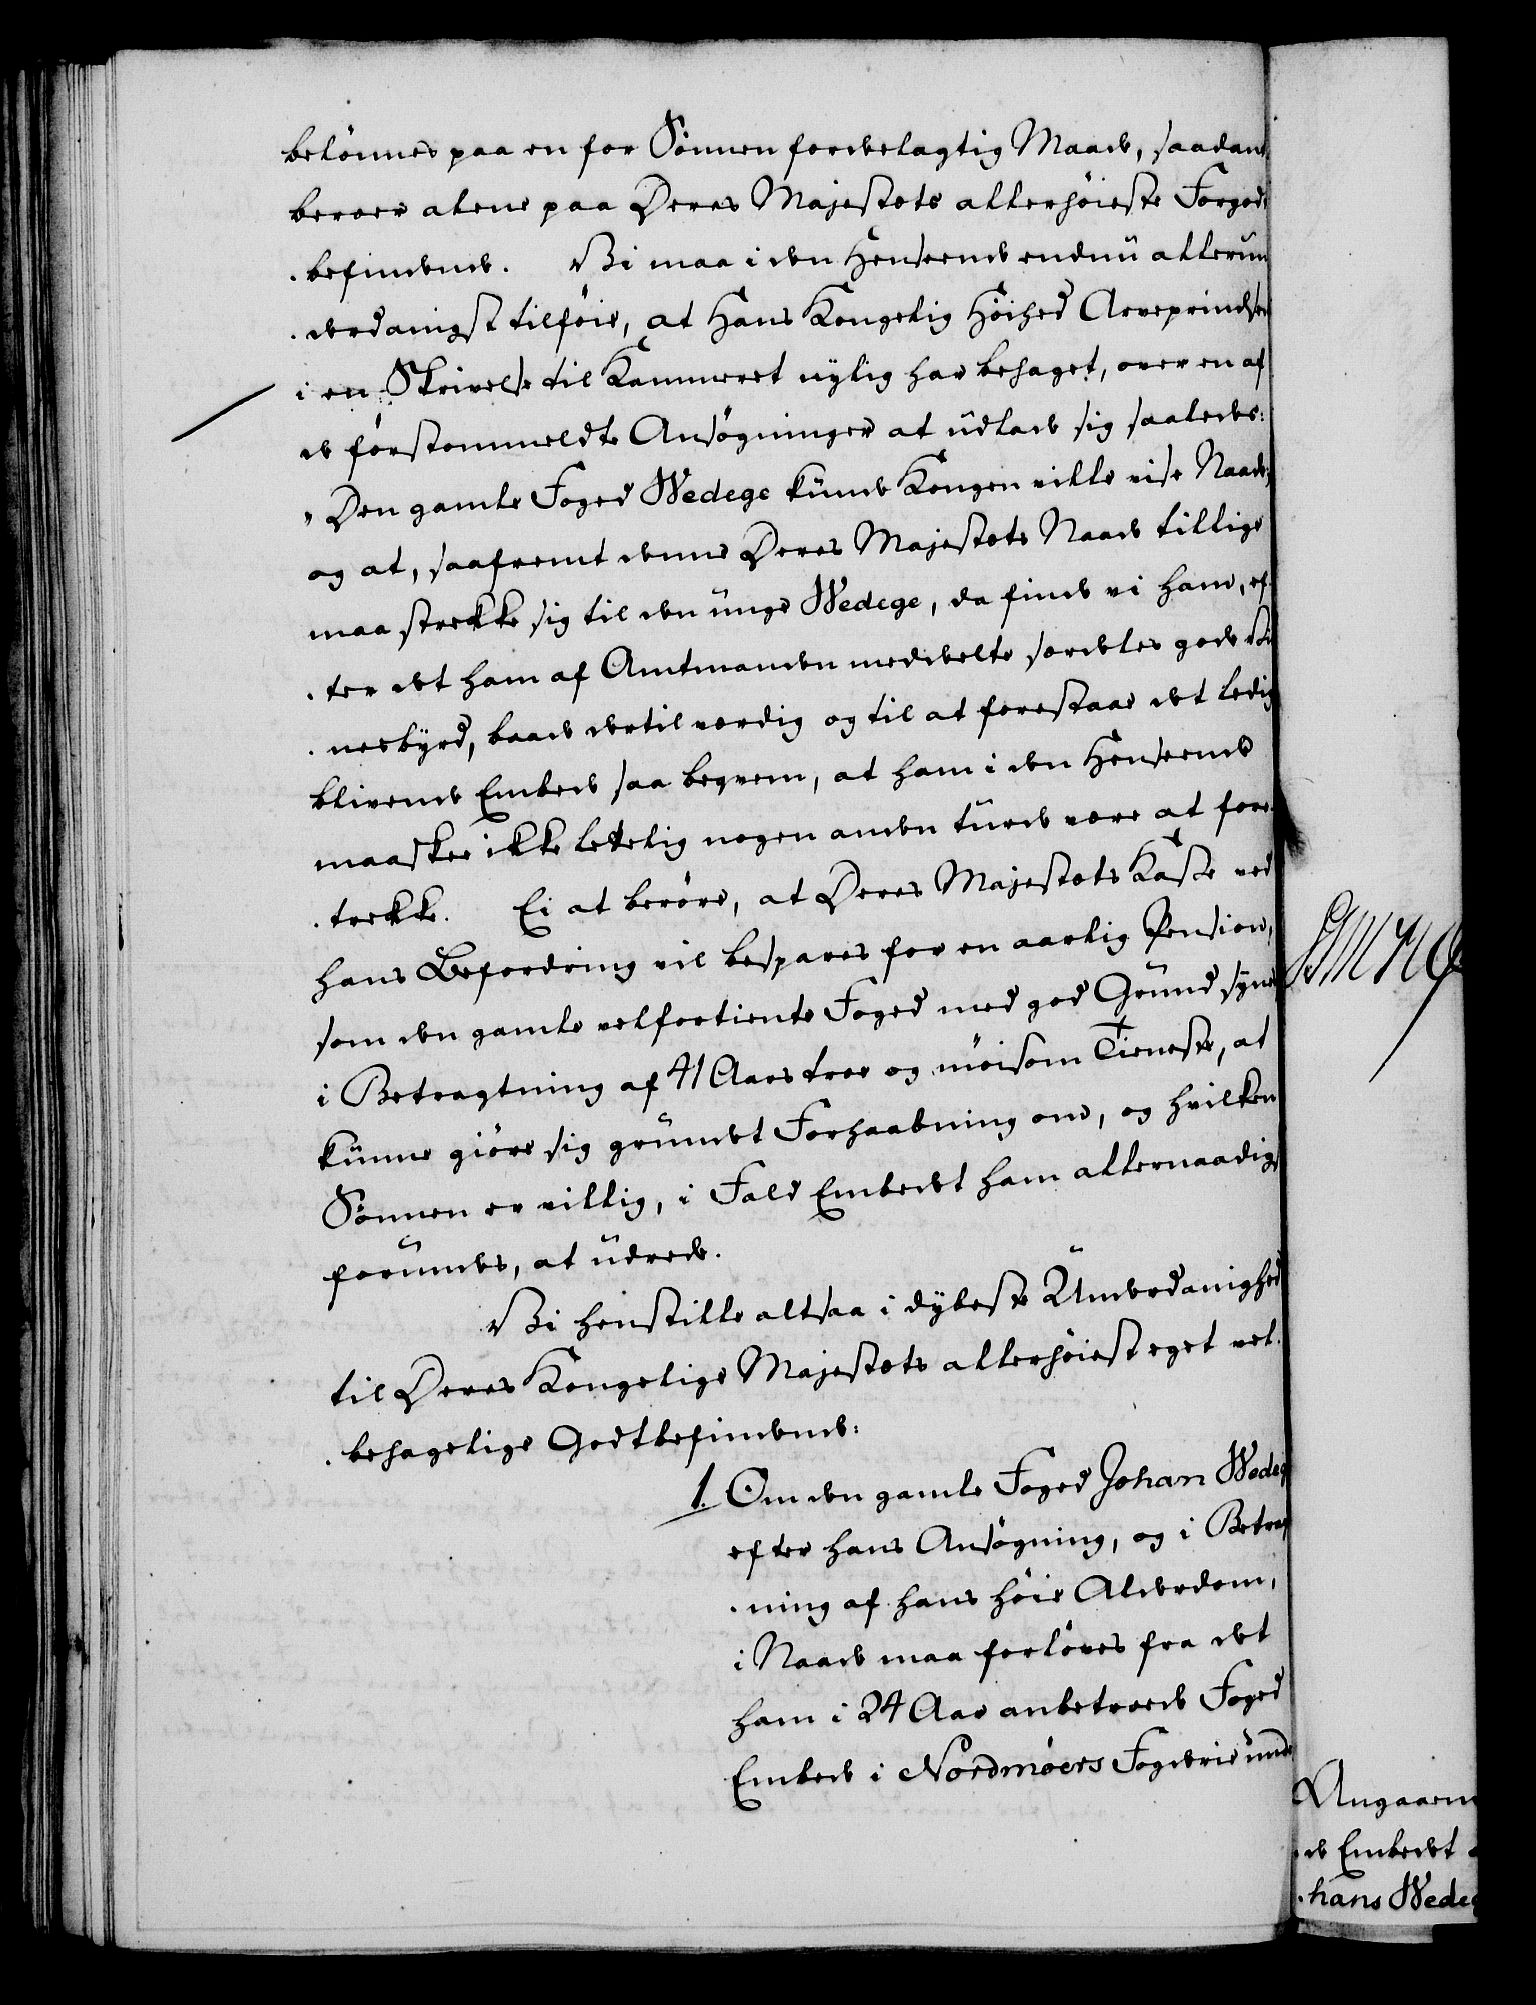 belönnes paa en for Sönnen fordelagtig Maade, saadant
beroer alene paa Deres Majestæts allerhöieste Forgodt
.befindende. Vi maa i den Henseende endnu allerun
.derdanigst tilföie, at Hans Kongelig Höihed Arveprindsen
i en Skrivelse til Kammeret nylig har behaget, over en af
de förstommeldte Ansögninger at udlade sig saaledes:
"Den gamle Foged Wedege kunde Kongen ville vise Naade;
og at, saafremt denne Deres Majestæts Naade tillige
maa strekke sig til den unge Wedege, da finde vi ham, ef
.ter det ham af Amtmanden meddeelte særdeles gode Vid
.nesbyrd, baade dertil værdig og til at forestaae det ledig
blivende Embede saa beqvem, at ham i den Henseende
maaskee ikke letelig nogen anden turde være at fore
.trekke. Ei at beröre, at Deres Majestæts Kasse ved
hans Befordring vil bespares for en aarlig Pension,
som den gamle velfortiente Foged med god Grund synes
i Betragtning af 41 Aars troe og möisom Tieneste, at
kunne giöre sig grundet Forhaabning om, og hvilken
Sönnen er villig, i Fald Embedet ham allernaadigst
forundes, at udrede.
Vi henstille altsaa i dybeste Underdanighed
til Deres Kongelige Majestæts allerhöiest eget vel
.behagelige Godtbefindende:
1. Om den gamle Foged Johan Wedeg
efter hans Ansögning, og i Betrag
.ning af hans höie Alderdom,
i Naade maa forlöves fra det
ham i 24 Aar anbetroede Foged
Embede i Nordmöers Fogderie und
Angaaen
.de Embedet
.hans Wedeg